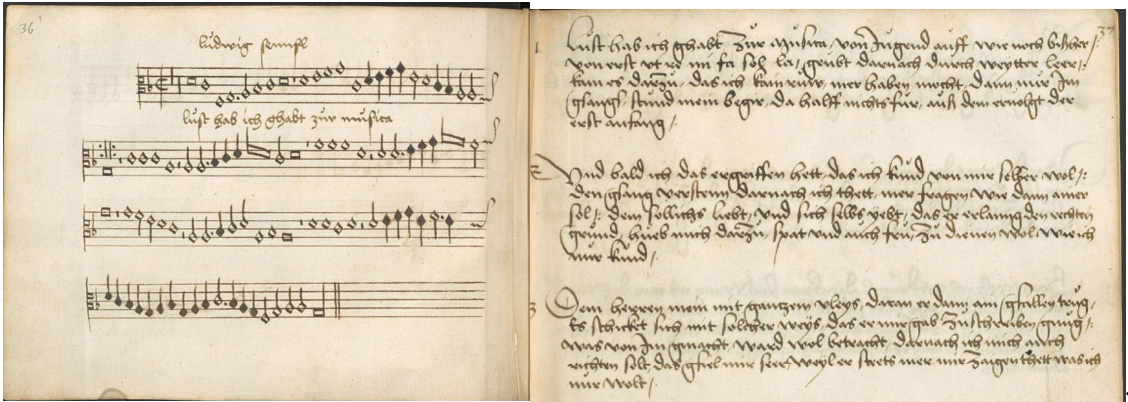 36
ludwig sennfl
lust hab ich ghabt zur musica
37
1
Lust hab ich ghabt Zur Musica, von Jugend auff wie noch bißher /:
von erst vt re mi fa sol la, geübt darnach durch weytter leer /:
kan es darzu, das ich kain ruw, mer haben mocht, dann nur Im
gsang stund mein begir, da halff nichts für, auß dem ervolgt der
erst anfang /:
2
Vnd bald ich das ergriffen hett, das ich kund von mir selber wol /:
den gsang versteen, darnach ich thett, mer fragen wie dann ainer
sol /: dem sollichs liebt, vnd sich selbs yebt, das er erlanng den rechten
grund, hueb mich darzu, spat vnd auch frü, Zu dienen wol wie ich
nur kund /:
3
Dem herren mein mit gantzem vleys, daran er dann ain gfallen trug,
Es schicket sich mit solcher weys, das er mir gab Zuschreiben gnug /:
was von Im gmacht, ward wol betracht, darnach ich mich auch
richten solt, das gfiel mir seer, weyl er stets mer mir Zaigen thett was ich
nur wolt /: